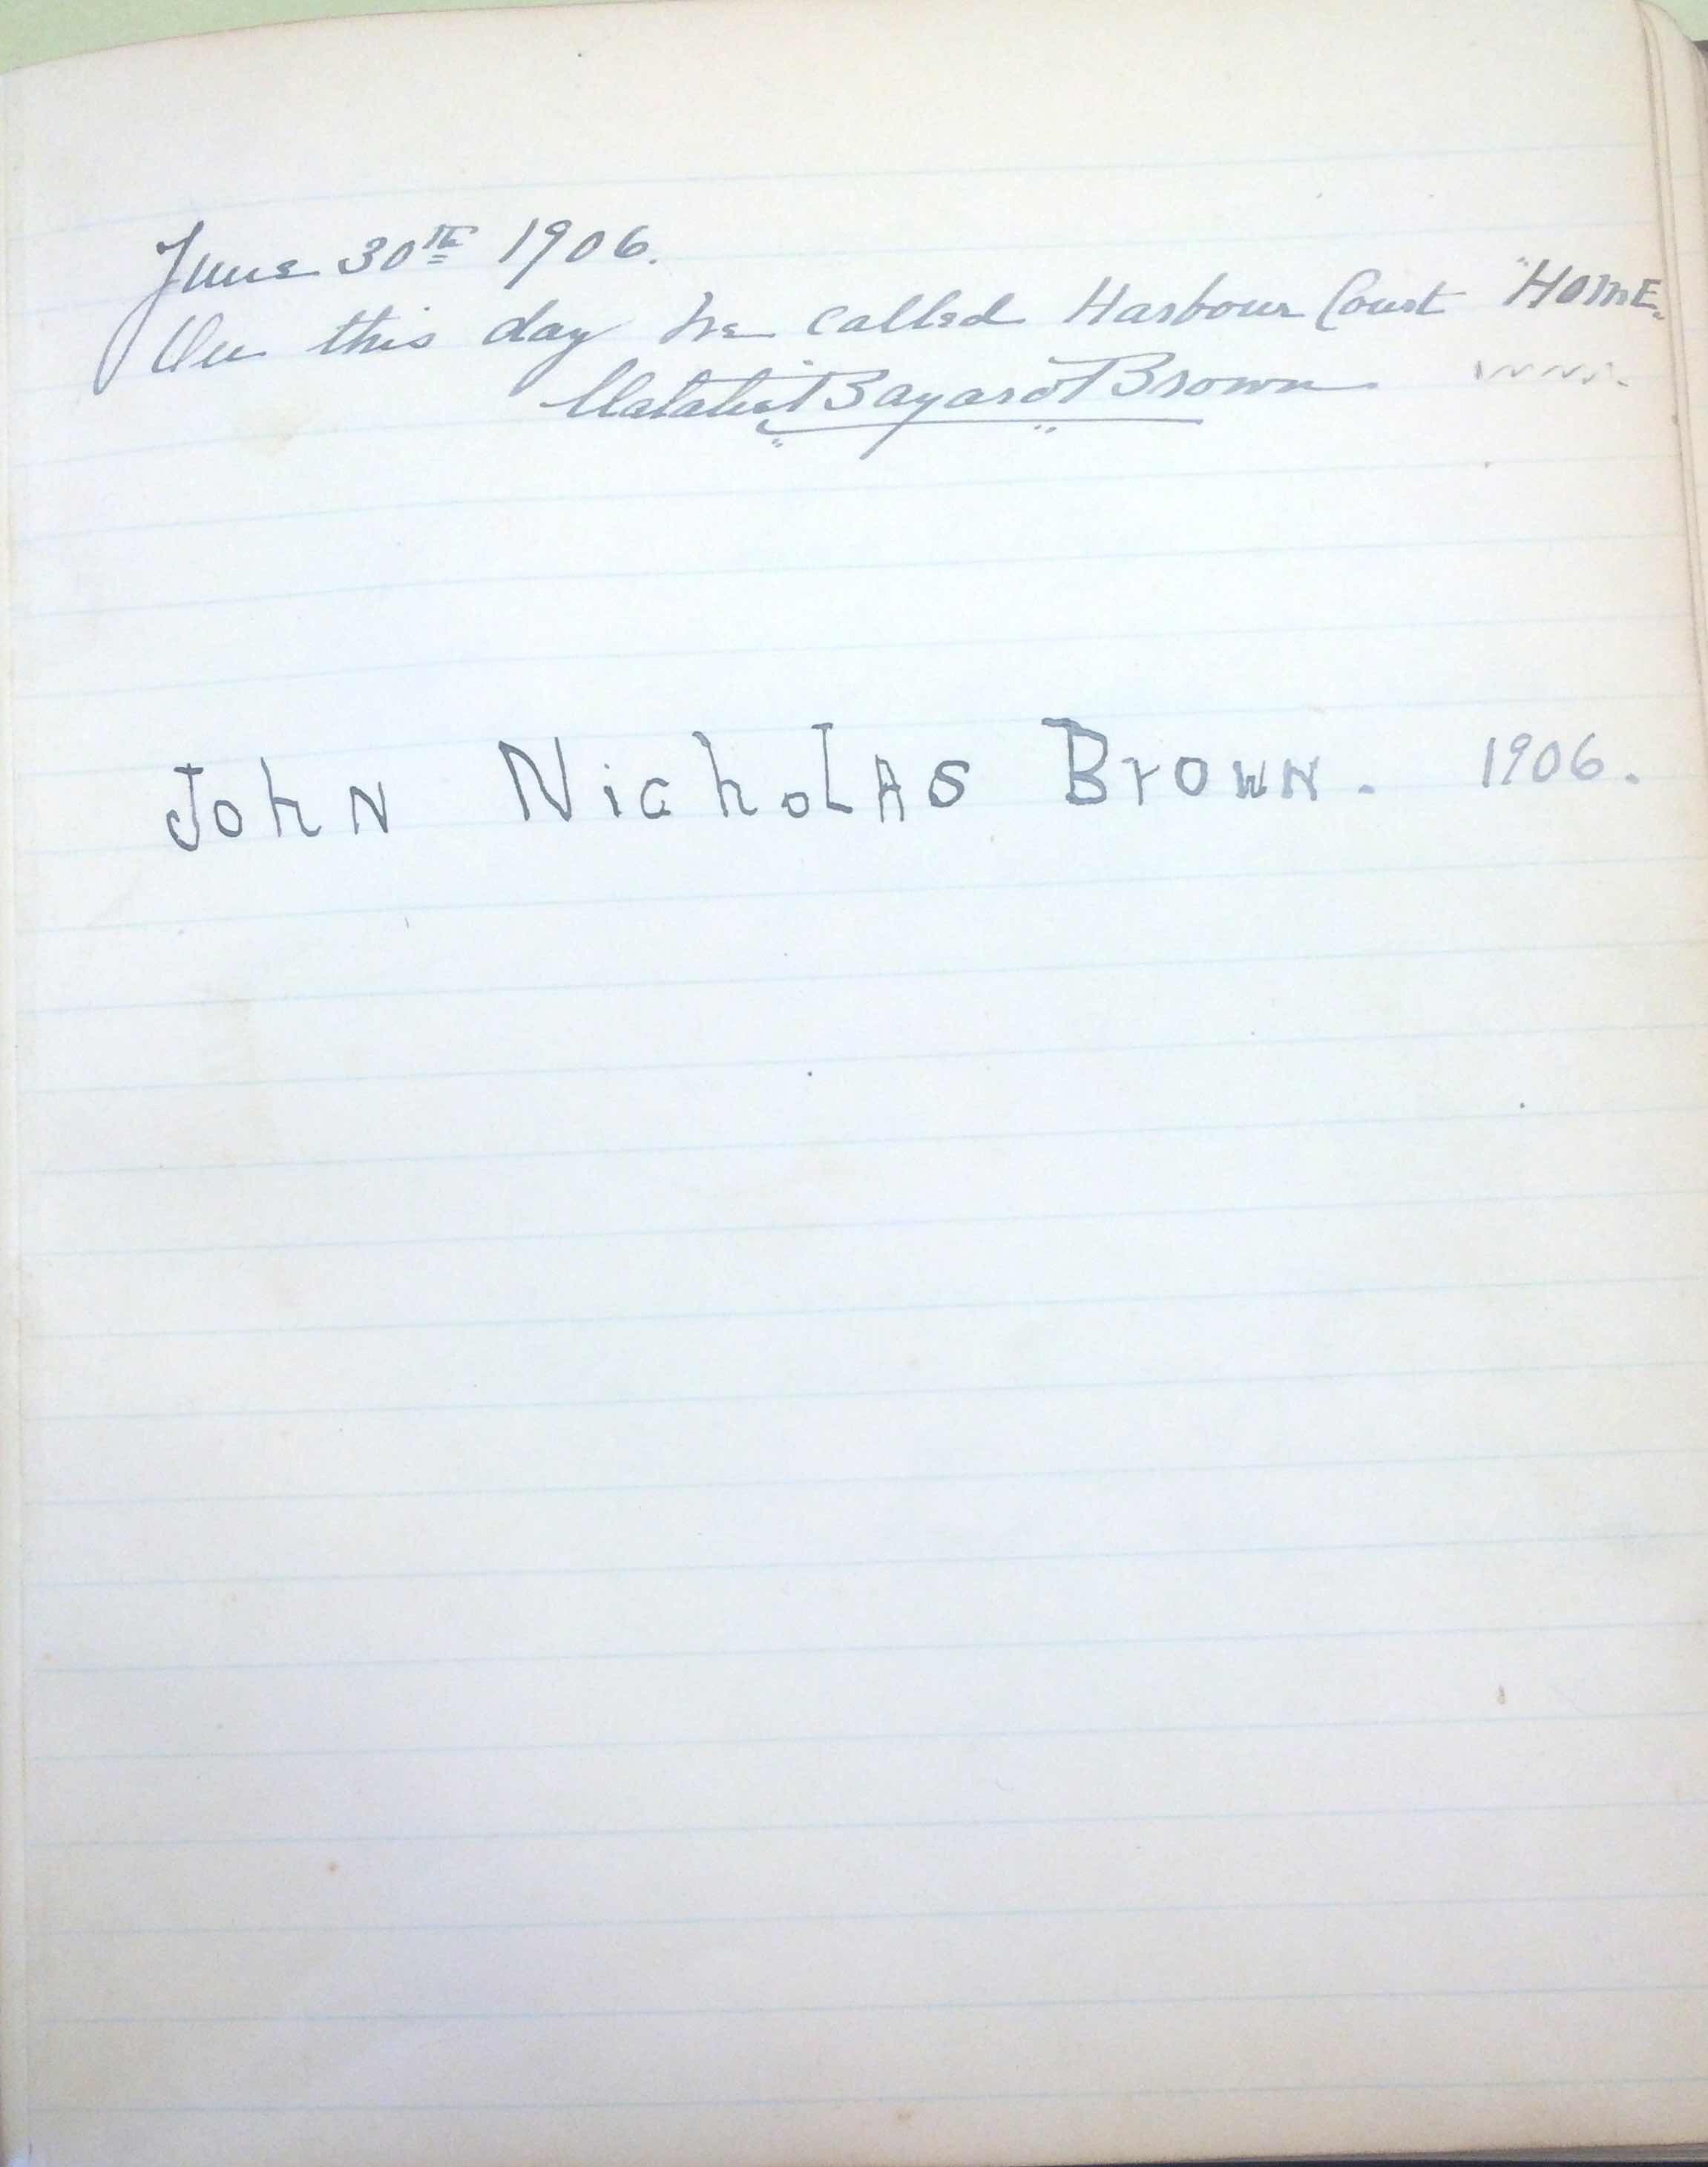 June 30TH 1906.
On this day we called Harbour Court "HOME"
Natalie Bayard Brown
John NicholAs Brown. 1906.